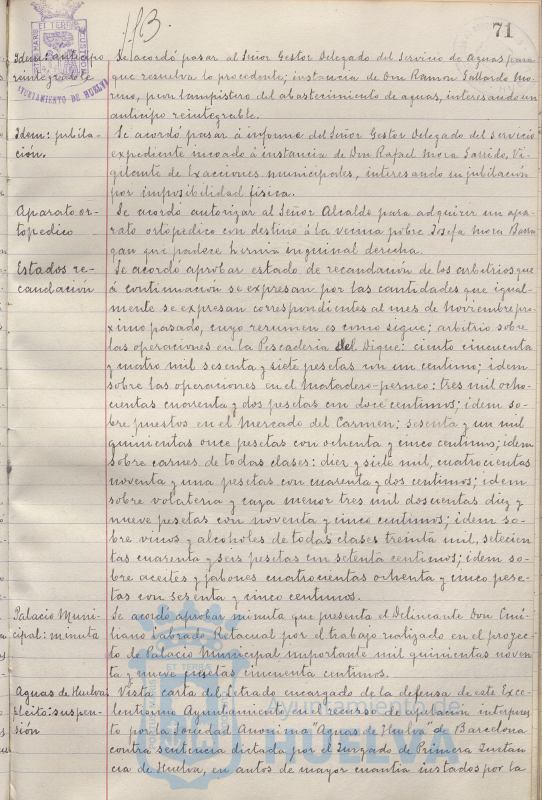 113.
71
AYUNTAMIENTO DE HUELVA
Idem: anticipo reintegrable
Se acordó pasar al Señor Gestor Delegado del Servicio de Aguas para
que resuelva lo procedente; instancia de Don Ramon Gallardo Mo-
reno, peon lampistero del abastecimiento de aguas, interesando un
anticipo reintegrable.
Idem: jubila-
ción.
Se acordó pasar á informe del Señor Gestor Delegado del servicio
expediente incoado á instancia de Don Rafael Mora Garrido, Vi-
gilante de Exacciones municipales, interesando su jubilación
por imposibilidad física.
Aparato or-
topedico
Se acordó autorizar al Señor Alcalde para adquirir un apa-
rato ortopedico con destino á la vecina pobre Josefa Mora Barra
gan que padece hernia inguinal derecha.
Estados re-
caudación
Se acordó aprobar estado de recaudación de los arbitrios que
á continuación se expresan por las cantidades que igual-
mente se expresan correspondientes al mes de Noviembre pro-
ximo pasado, cuyo resumen es como sigue; arbitrio sobre
las operaciones en la Pescaderia del Dique: ciento cincuenta
y cuatro mil sesenta y siete pesetas con un centimo; idem
sobre las operaciones en el Matadero-perneo: tres mil ocho-
cientas cuarenta y dos pesetas con doce centimos; idem so-
bre puestos en el Mercado del Carmen: sesenta y un mil
quinientas once pesetas con ochenta y cinco centimos; idem
sobre carnes de todas clases: diez y siete mil, cuatrocientas
noventa y una pesetas con cuarenta y dos centimos; idem
sobre volateria y caza menor tres mil doscientas diez y
nueve pesetas con noventa y cinco centimos; idem so-
bre vinos y alcoholes de todas clases treinta mil, setecien
tas cuarenta y seis pesetas con setenta centimos; idem so-
bre aceites y jabones cuatrocientas ochenta y cinco pese-
tas con sesenta y cinco centimos.
Palacio Muni-
cipal: minuta
Se acordó aprobar minuta que presenta el Delineante Don Emi-
liano Labrado Retacual por el trabajo realizado en el proyec-
to de Palacio Municipal importante mil quinientas noven
ta y nueve pesetas cincuenta centimos.
Aguas de Huelva
pleito: suspen-
sión
Vista carta del Letrado encargado de la defensa de este Exce-
lentisimo Ayuntamiento en el recurso de apelación interpues-
to por la Sociedad Anonima "Aguas de Huelva" de Barcelona
contra sentencia dictada por el Juzgado de Primera Instan-
cia de Huelva, en autos de mayor cuantia instados por la
Ayuntamiento de
HUELVA